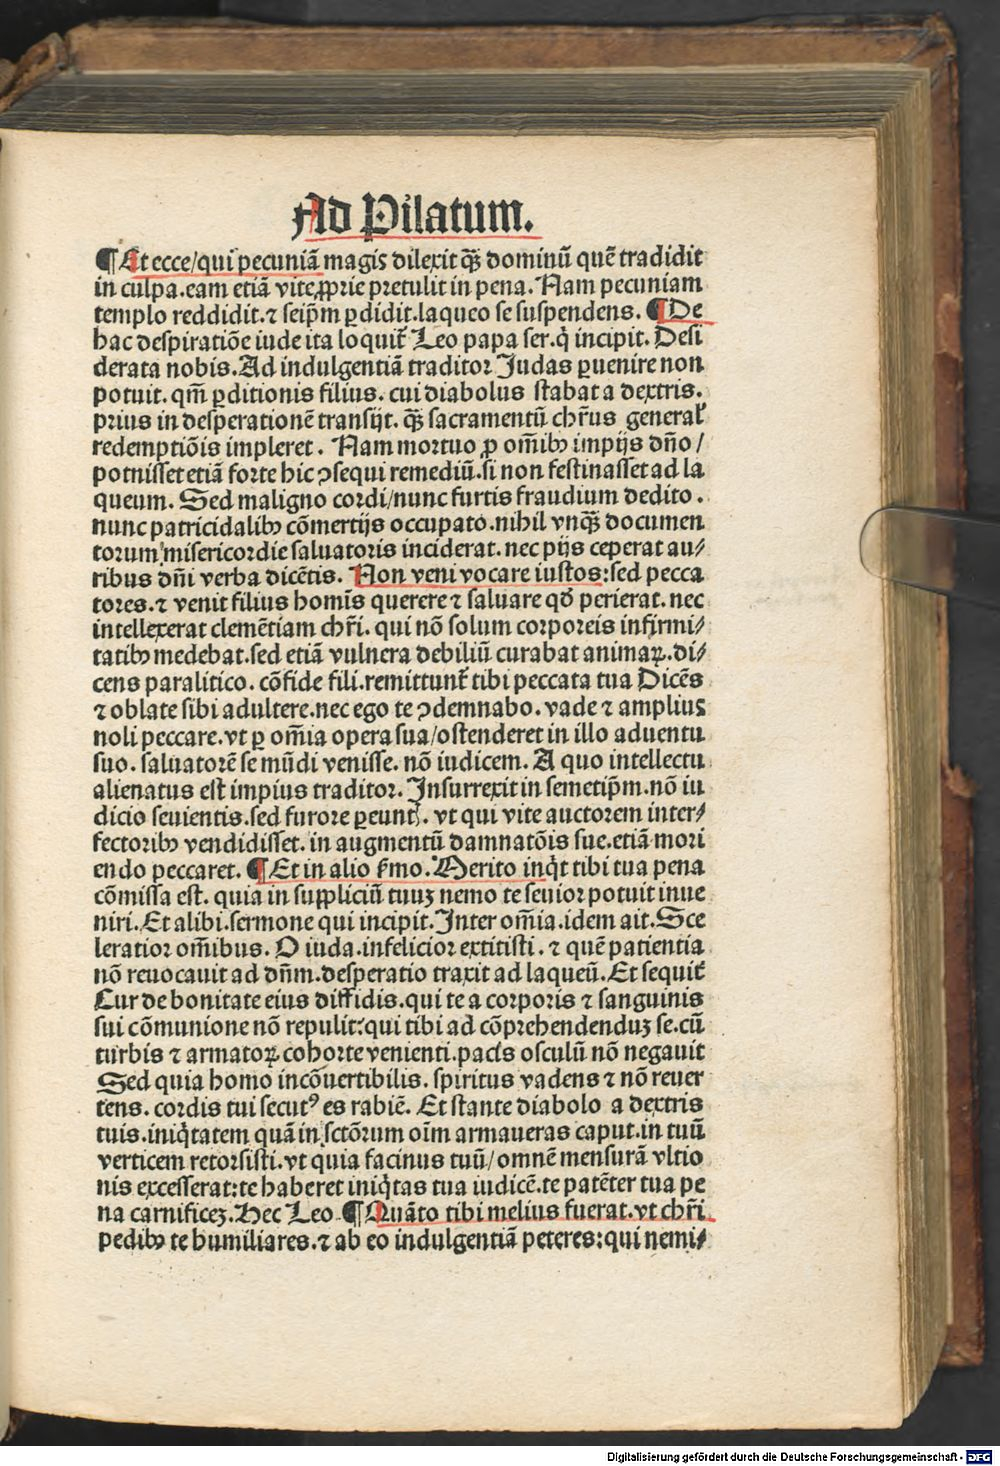 Ad Pilatum.
¶ Et ecce/qui pecuniā magis dilexit qȝ̄ dominū quē tradidit
in culpa.eam etiā vite ꝓprie pretulit in pena. Nam pecuniam
templo reddidit.⁊ seip̄m ꝑdidit.laqueo se suspendens. ¶ De
hac despiratiōe iude ita loquit᷑ Leo papa ser.q̇ incipit. Desi
derata nobis. Ad indulgentiā traditor Judas ꝑuenire non
potuit. qm̄ ꝑditionis filius. cui diabolus stabat a dextris.
prius in desperationē transijt. qȝ̄ sacramentū chr̄us general᷑
redemptiōis impleret. Nam mortuo ꝓ om̄ibꝰ impijs dn̄o/
potnisset etiā forte hic ꝯsequi remediū.si non festinasset ad la
queum. Sed maligno cordi/nunc furtis fraudium dedito.
nunc patricidalibꝰ cōmertijs occupato.nihil vnqȝ̄ documen
torum misericordie saluatoris inciderat. nec pijs ceperat au⸗
ribus dn̄i verba dicētis. Non veni vocare iustos:sed pecca
tores.⁊ venit filius homīs querere ⁊ saluare qd̄ perierat. nec
intellexerat clemētiam chr̄i. qui nō solum corporeis infirmi⸗
tatibꝰ medebat.sed etiā vulnera debiliū curabat animaꝝ.di⸗
cens paralitico. cōfide fili.remittunt᷑ tibi peccata tua Dicēs
⁊ oblate sibi adultere.nec ego te ꝯdemnabo. vade ⁊ amplius
noli peccare.vt ꝑ om̄ia opera sua/ostenderet in illo aduentu
suo. saluatorē se mūdi venisse. nō iudicem. A quo intellectu
alienatus est impius traditor. Insurrexit in semetip̄m.nō iu
dicio seuientis.sed furore ꝑeunt. vt qui vite auctorem inter⸗
fectoribꝰ vendidisset. in augmentū damnatōis sue.etiā mori
endo peccaret. ¶ Et in alio ẜmo. Merito inq̇t tibi tua pena
cōmissa est. quia in suppliciū tuuȝ nemo te seuior potuit inue
niri. Et alibi.sermone qui incipit. Inter om̄ia.idem ait. Sce
leratior om̄ibus. O iuda.infelicior extitisti. ⁊ quē patientia
nō reuocauit ad dn̄m.desperatio traxit ad laqueū. Et sequit᷑
Cur de bonitate eius diffidis.qui te a corporis ⁊ sanguinis
sui cōmunione nō repulit:qui tibi ad cōprehendenduȝ se.cū
turbis ⁊ armatoꝝ cohorte venienti.pacis osculū nō negauit
Sed quia homo incōuertibilis. spiritus vadens ⁊ nō reuer
tens. cordis tui secutꝰ es rabiē. Et stante diabolo a dextris
tuis.iniq̇tatem quā in sctōrum oīm armaueras caput.in tuū
verticem retorsisti.vt quia facinus tuū/omnē mensurā vltio
nis excesserat:te haberet iniq̇tas tua iudicē.te patēter tua pe
na carnificeȝ. Hec Leo ¶ Quāto tibi melius fuerat.vt chr̄i
pedibꝰ te humiliares.⁊ ab eo indulgentiā peteres:qui nemi⸗
Digitalisierung gefördert durch die Deutsche Forschungsgemeinschaft - DFG